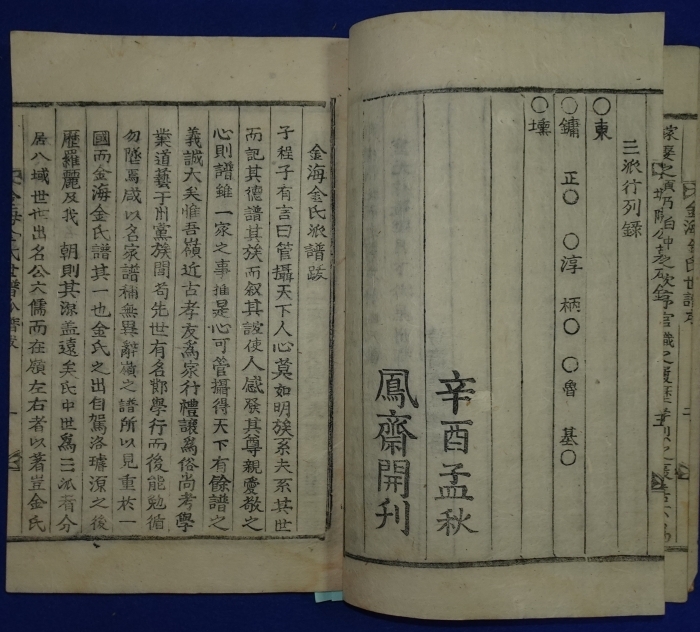 三派行列錄
○東
○鏞 正○ ○淳 柄○ ○魯 基○
○壎
辛酉孟秋
鳳齋開刊
金海金氏派譜跋
子程子有言曰管攝天下人心莫如明族系夫系其世
而記其德譜其族而叙其誼使人感發其尊親愛敬之
心則譜雖一家之事推是心可管攝得天下有餘譜之
義誠大矣惟吾嶺近古孝友爲家行禮讓爲俗尚考學
業道藝于州黨族閭苟先世有名鄕學行而後能勉循
勿墜焉咸以名家諸稱無異辭嶺之譜所以見重於一
國而金海金氏譜其一也金氏之出自駕洛璿源之後
歷羅麗及我 朝則其深盖遠矣氏中世爲三派者分
居八域世世出名公大儒而在嶺左右者以著豈金氏